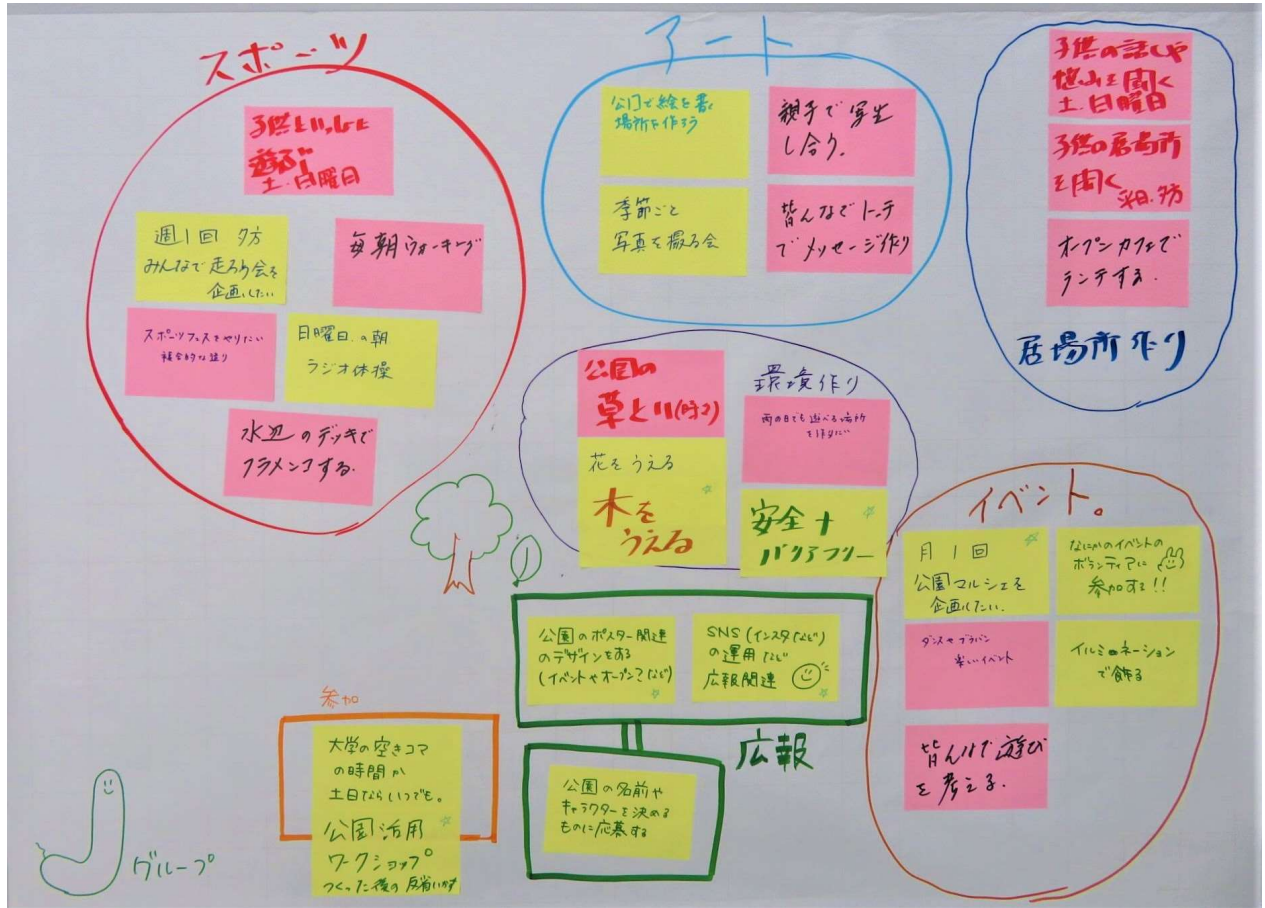 スポーツ
子供といっしょに
遊ぶ
土・日曜日
週1回 夕方
みんなで走ろう会を
企画したい
毎朝ウォーキング
スポーツフェスをやりたい
複合的な
日曜日の朝
ラジオ体操
水辺のデッキで
フラメンコする.
アート
公園で絵を書く
場所を作ろう
親子で写生
し合う.
季節ごと
写真を撮る会
皆んなで
でメッセージ作り
子供の話しや
悩みを聞く
土・日曜日
子供の居場所
を開く 平日.夕方
オープンカフェで
ランチする.
居場所作り
環境作り
公園の
草とり
雨の日でも遊べる場所
を作りたい
花をうえる
木を
うえる
安全+
バリアフリー
イベント。
月1回
公園マルシェを
企画したい.
なにかのイベントの
ボランティアに
参加する!!
ダンスやブラバン
楽しいイベント
イルミネーション
で飾る
皆んなで遊び
を考える.
公園のポスター関連
のデザインをする
(イベントやオープン?など)
SNS(インスタなど)
の運用など
広報関連
広報
公園の名前や
キャラクターを決める
ものに応募する
参加
大学の空きコマ
の時間か
土日ならいつでも。
公園活用
ワークショップ
つくった後の反省いかす
J
グループ